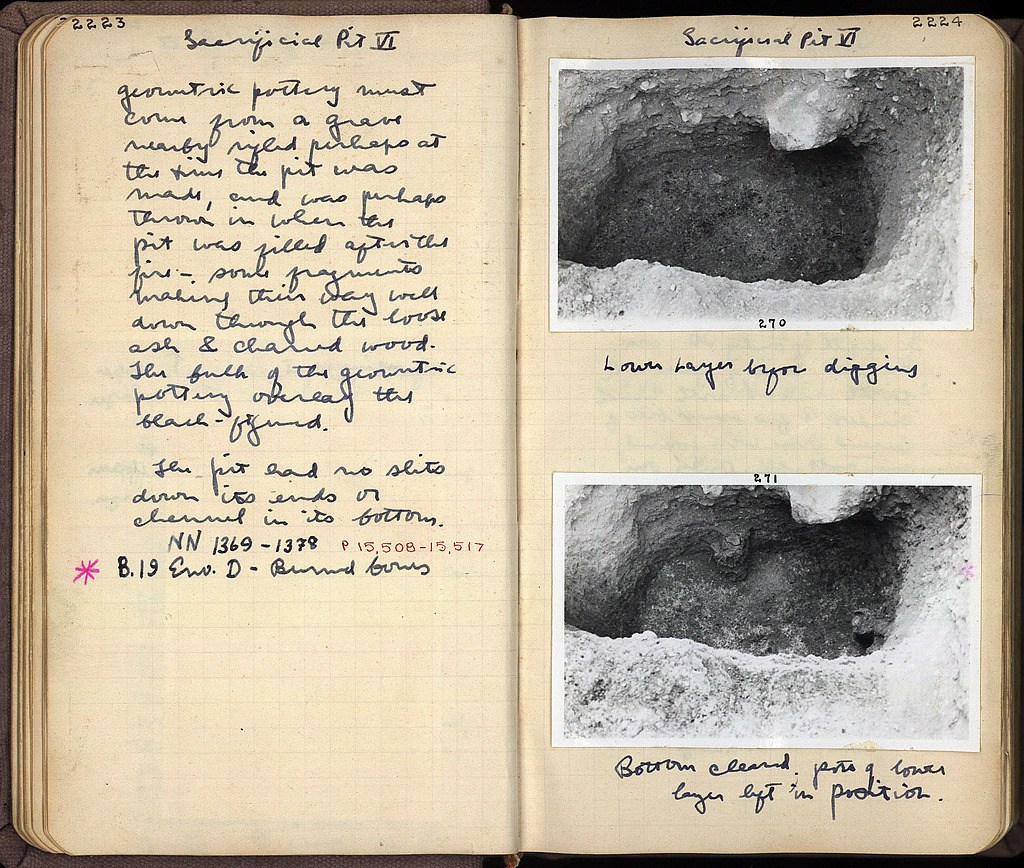 2223
Sacrificial Pit VI
geometric pottery must
come from a grave
nearby rifled perhaps at
the time the pit was
made, and was perhaps
thrown in when the
pit was filled after the
fire - some fragments
making their way well
down through the loose
ash & charred wood.
The bulk of the geometric
pottery overlay the
black-figured.
The pit had no slits
down its ends or
channel in its bottom.
NN 1369-1378 P 15,508-15,517
* B.19 Env. D - Burned bones
2224
Sacrificial Pit VI
270
Lower Layer before digging
271
Bottom cleared. pots of lower
layer left in position.